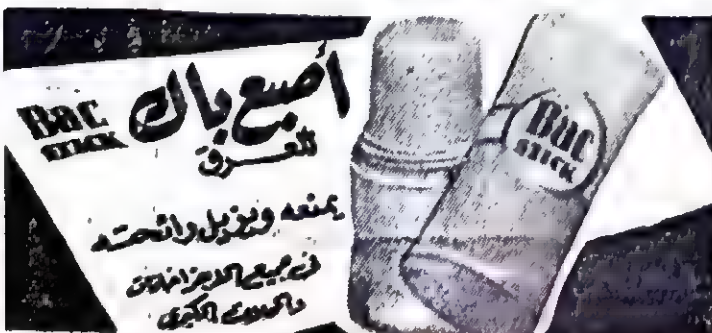 أصبع باك
Bac STICK
للعرق
يمنعه ويزيل رائحته
في جميع الاجزاخانات
والمحلات الكبرى
Bac STICK